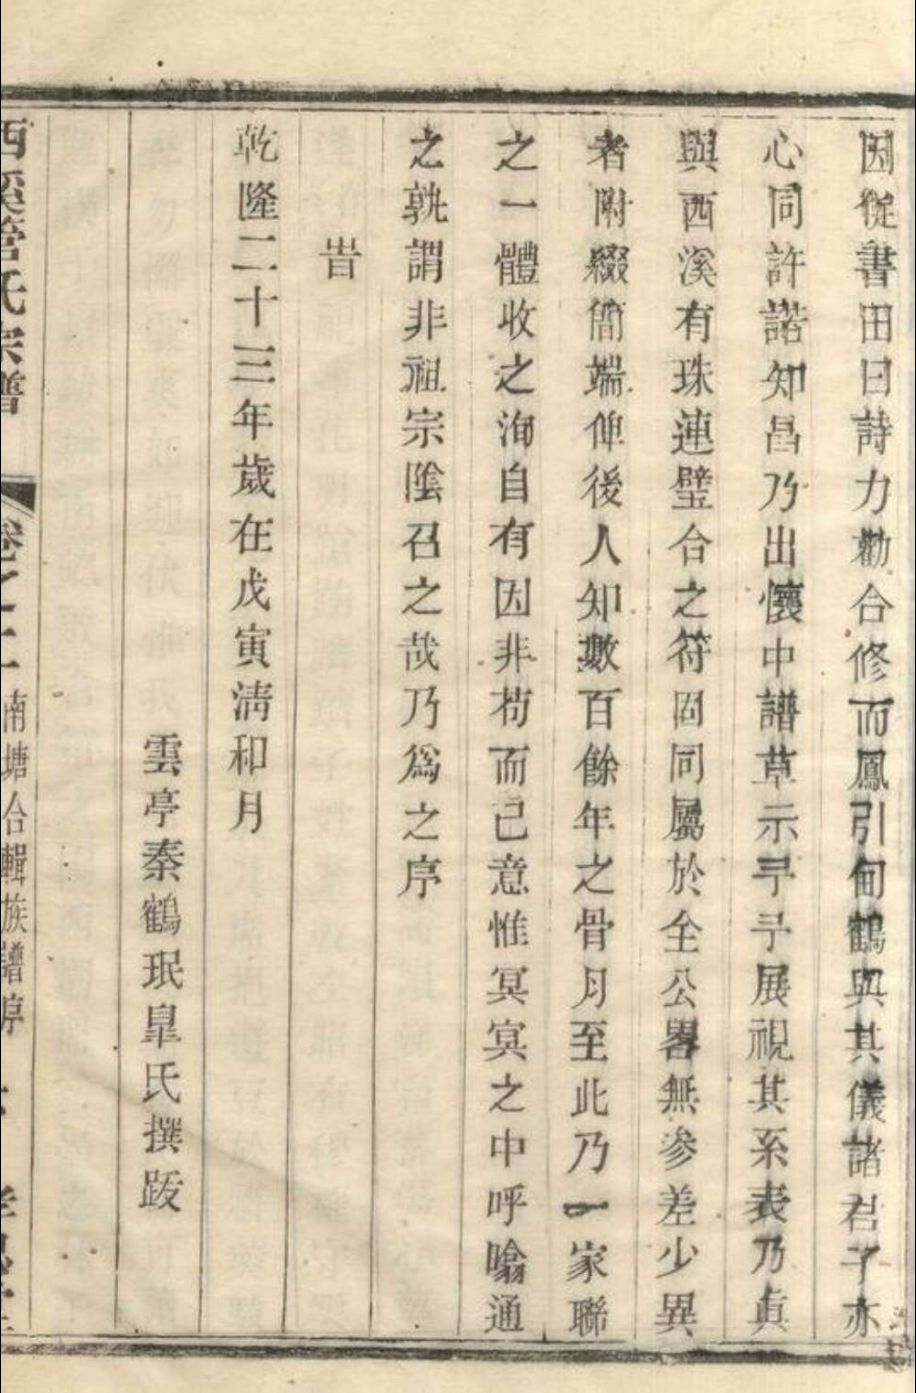 因從書田曰詩力勸合修而鳳引甸鶴與其儀諸君子亦
心同許諾知昌乃出懷中譜草示予予展視其系表乃真
與西溪有珠連璧合之符固同屬於全公畧無參差少異
者附綴簡端俾後人知數百餘年之骨肉至此乃一家聯
之一體收之洵自有因非茍而已意惟冥冥之中呼噏通
之孰謂非祖宗陰召之哉乃爲之序
旹
乾隆二十三年歲在戊寅清和月
雲亭秦鶴珉皐氏撰跋
西溪管氏宗譜 卷之二 南塘合輯族譜序